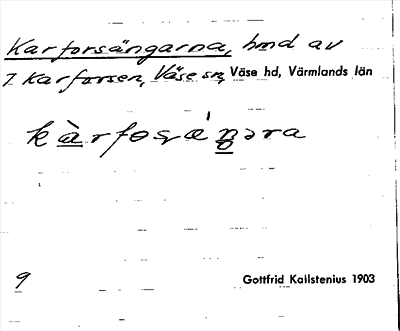 Karforsängarna, hmd av
7 Karforsen, Väse sn, Väse hd, Värmlands län
kàrfosa'ŋəra
9
Gottfrid Kallstenius 1903